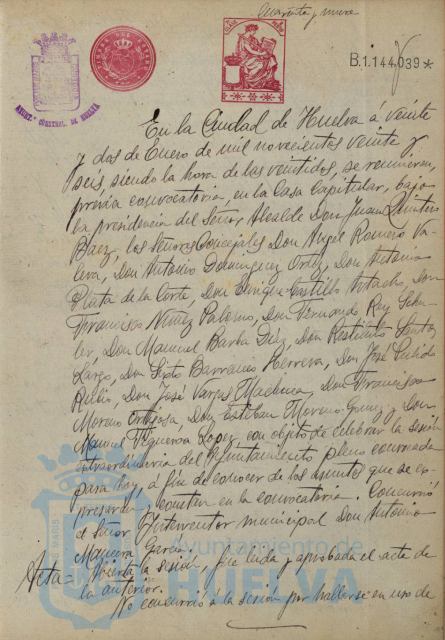 Cuarenta y nueve
B.1.144.039*
AYUNT.º CONSTNAL. DE HUELVA
En la Ciudad de Huelva á veinte
y dos de Enero de mil novecientos veinte y
seis, siendo la hora de las veintidos, se reunieron,
previa convocatoria, en la Casa Capitular, bajo
la presidencia del Señor Alcalde Don Juan Quintero
Báez, los Señores Concejales Don Angel Romero Va
leva, Don Antonio Dominguez Ortiz, Don Antonio
Pinta de la Corte, Don Enrique Castillo Don
Francisco Nuñez Palomo, Don Fernando Rey
ler, Don Manuel Barba Díz, Don Restituto Santos
Largo, Don Sixto Barranco Herrera, Don José Pulido
Rubio, Don José Vargas Machuca, Don Francisco
Moreno Ortijosa, Don Esteban Moreno Gomez y Don
Manuel Figueroa Lopez con objeto de celebrar la sesión
extraordinaria del Ayuntamiento pleno convocada
para hoy, al fin de conocer de los asuntos que se ex-
presaron y constan en la convocatoria. Concurrió
el Señor Interventor municipal Don Antonio
García.
Acta= Abierta la sesión, fue leida y aprobada el acta de
la anterior.
No concurrió á la sesión por hallarse en uso de
Ayuntamiento de
HUELVA